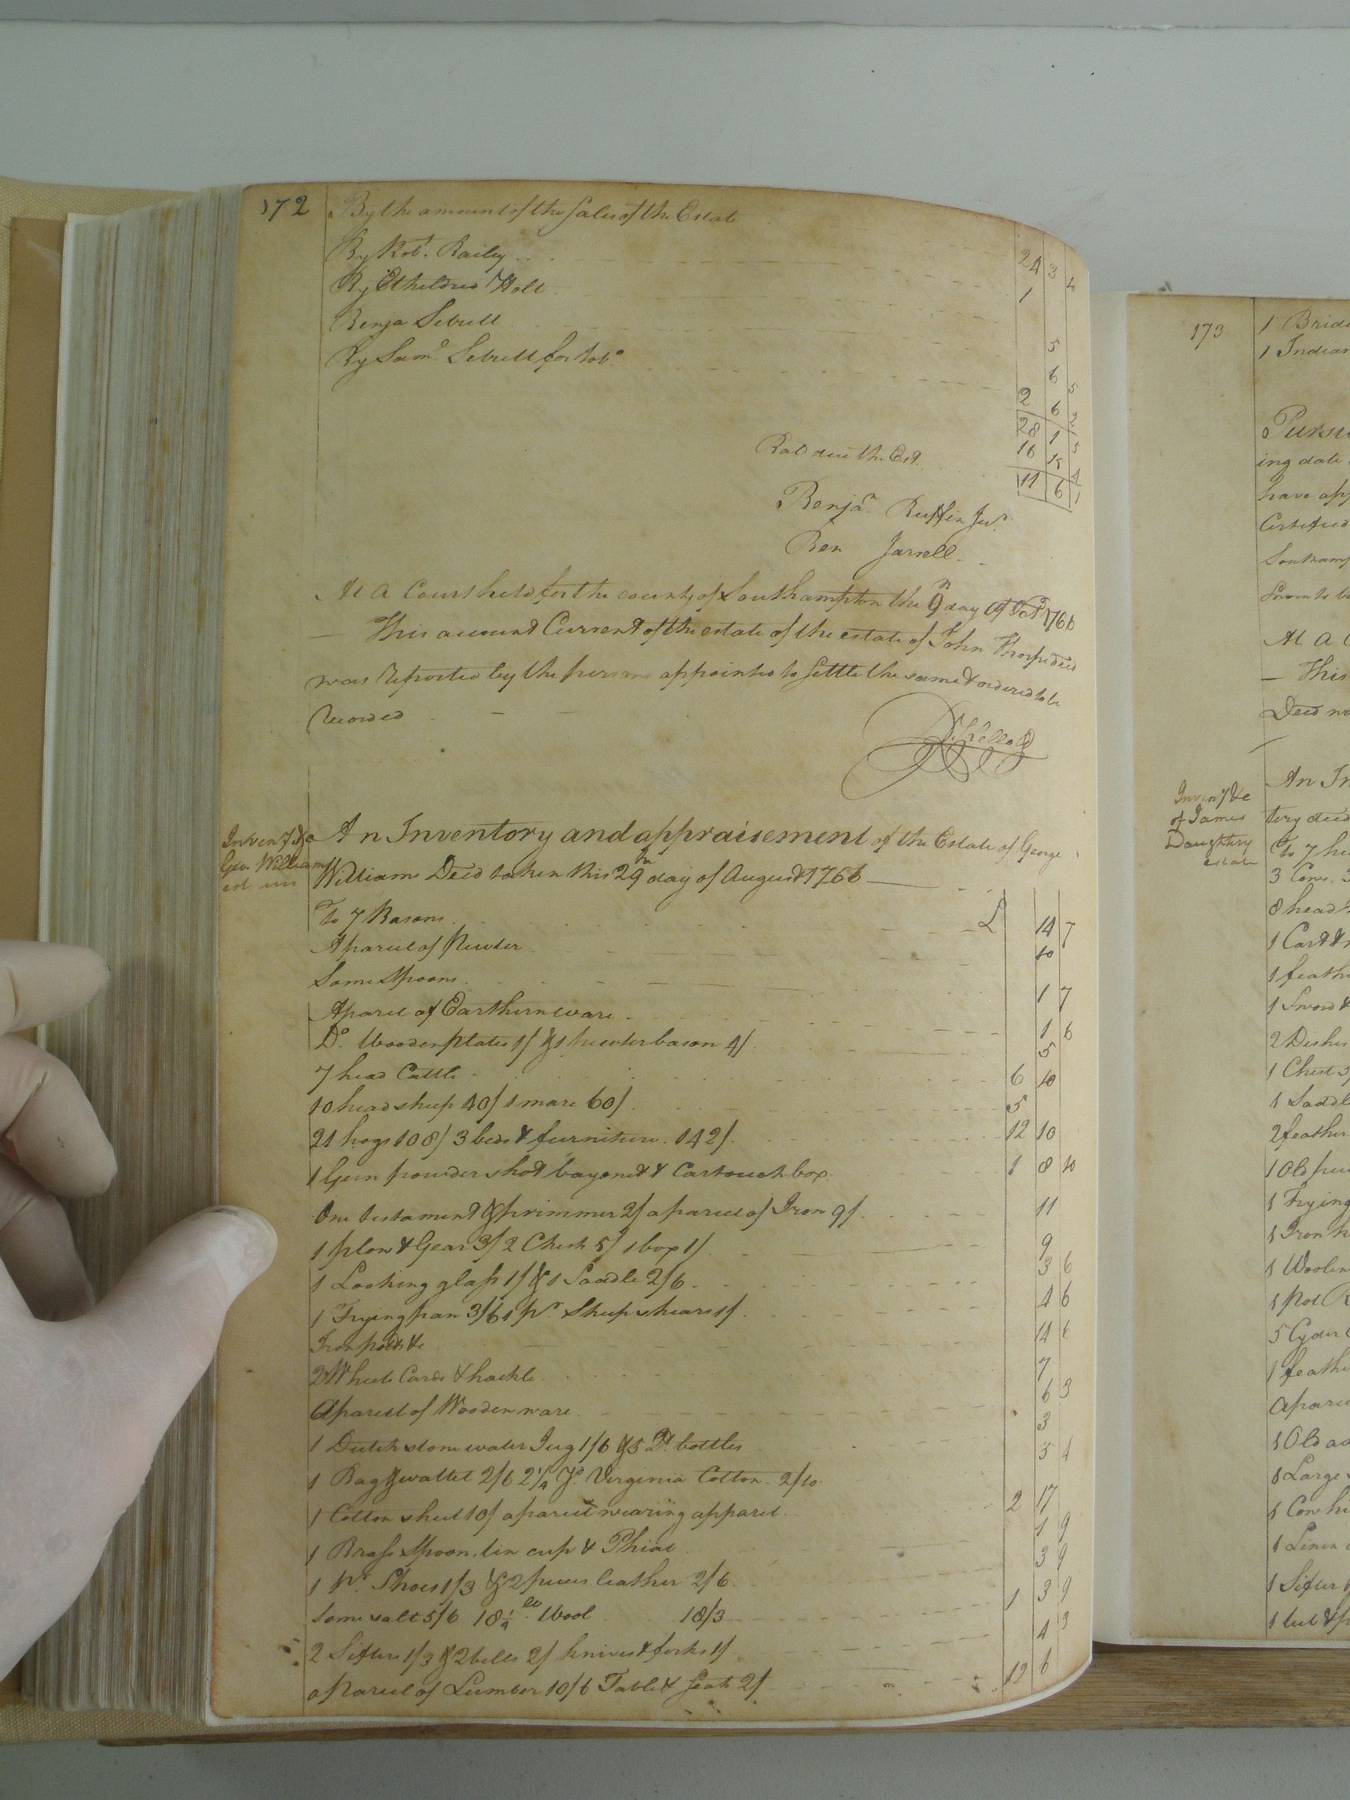 172
By the amount of the sales of the Estate
By Robt. Railey 24 3 4
By Etheldred Holt 1
Benja Sebrell 5
By Saml. Sebrell for tobo 6 5
2 6 2
28 1 5
Bal due the Est. 16 15 4
11 6 1
Benjan. Ruffin Junr.
Ben Jarrell
At a Court held for the county of Southampton the 9th day of Octr 1766
This account Current of the estate of the estate of John Thorp decd
was reported by the persons appointed to settle the same & ordered to be
Recorded
R. Kello
Inven'y &c
Geo. William
est
An Inventory and appraisement of the Estate of George
Williams Deed taken this 29th day of August 1766
To 7 Basons £ 14 7
A parcel of Pewter 10
Some Spoons 1 7
A parcel of Earthernware 1 6
Do. Wooden plates 1/ & 1 pewter bason 4/ 5
7 head Cattle 6 10
10 head sheep 40/ 1 mare 60/ 5
21 hogs 108/ 3 beds & furniture 142/ 12 10
1 Gun powder shot bayonet & Cartouch box 1 8 10
One testament & primmer 2/ a parcel of Iron 9/ 11
1 plow & Gear 3/ 2 Chest 5/ 1 box 1/ 9
1 Looking glass 1/ & 1 Saddle 2/6 3 6
1 Frying pan 3/6 1 pr. Sheep shears 1/ 4 6
Iron pots &c 14 6
2 Wheels Cards & hackle 7
A parcel of Wooden ware 6 3
1 Dutch stone water Jug 1/6 & 5 Qt. bottles 3
1 Bag & wallet 2/6 2¼ Yds Virginia Cotton 2/10 5 4
1 Cotton sheet 10/ a parcel wearing apparel 2 17
1 Brass Spoon tin cup & Phial 1 9
1 pr. Shoes 1/3 & 2 pieces leather 2/6 3 9
Some salt 5/6 18¼ lb Wool 18/3 1 3 9
2 Sifters 1/3 & 2 bells 2/ knives & forks 1/ 4 3
a parcel of Lumber 10/6 Table & Seat 2/ 12 6
173
1 Indian
Pursu
ing date
have app
Certified
Southamp
Sworn to b
At a C
This
Deed
Inven'y &c
of James
Daughtry
estate
An In
tery deed
To 7 he
3 Cows
8 head
1 Cart &
1 feath
1 Sword &
2 Dishes
1 Chest
1 Saddle
2 feather
1 Old
1 Frying
1 Iron
1 Woolen
1 pot
5 Cyder
1 feathe
a parce
1 Old
1 Large
1 Cow hi
1 Linen
1 Sifter
1 tub &